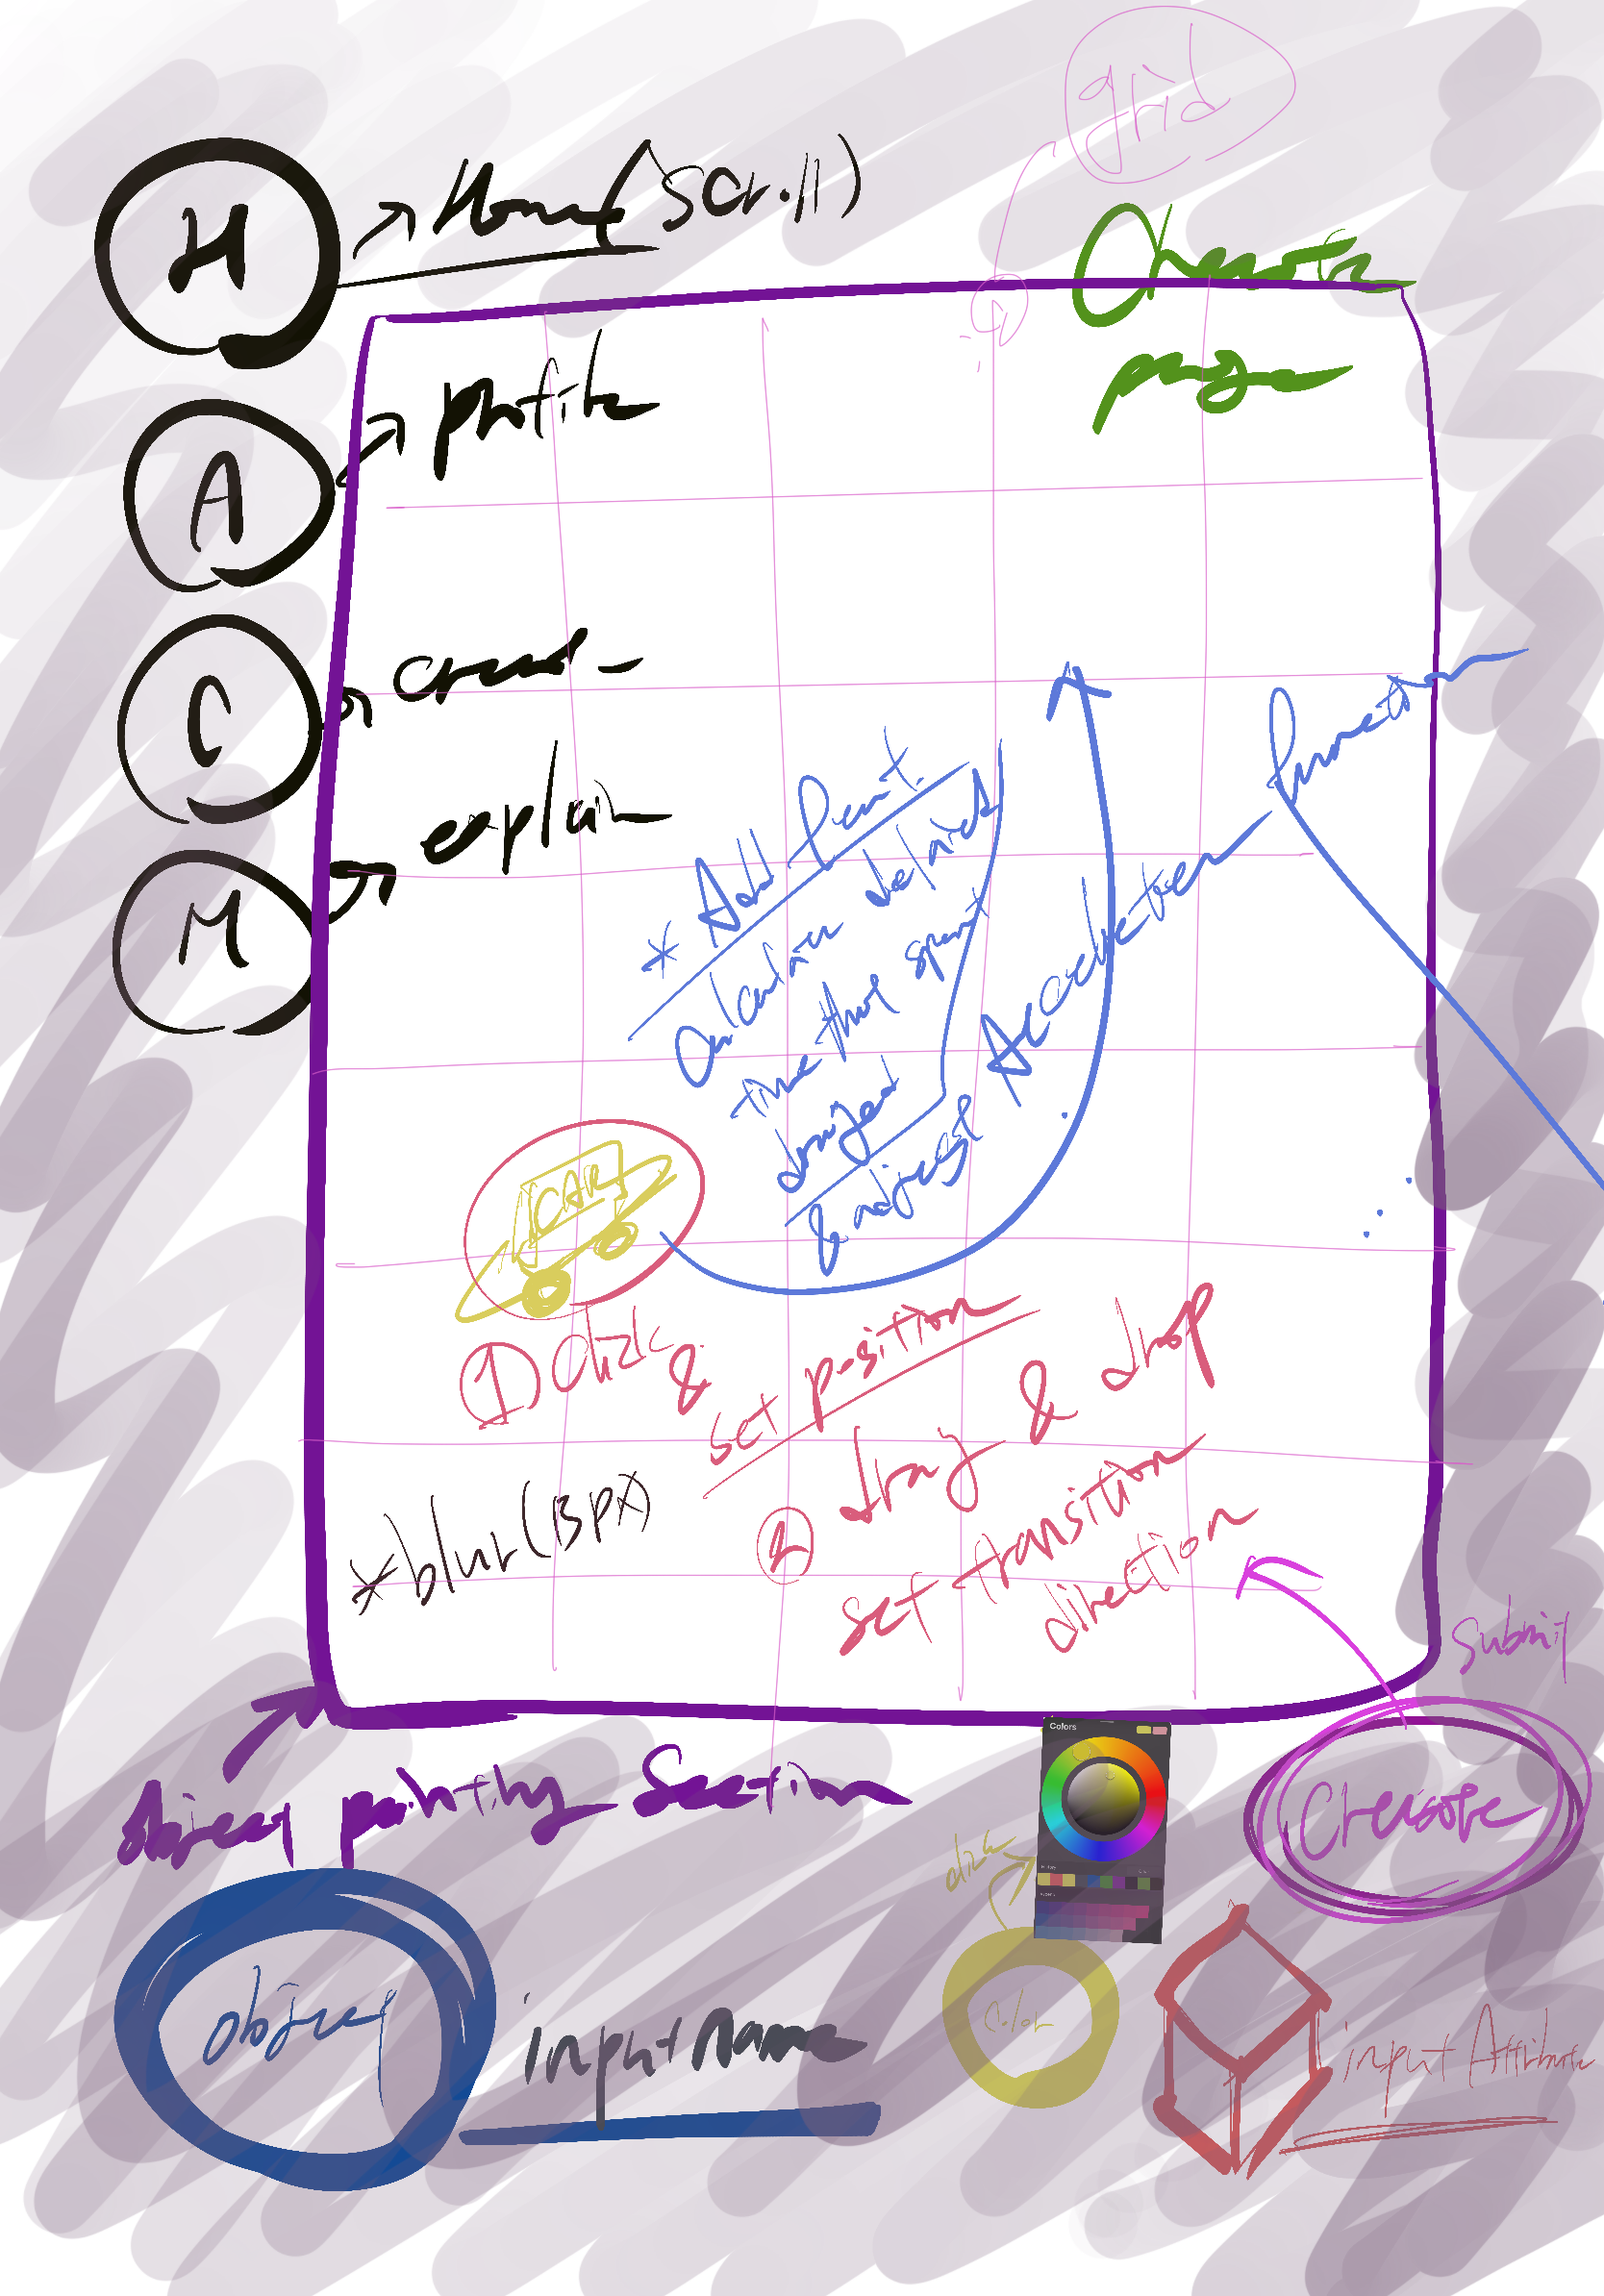 grid
H
Home (scroll)
page
A
profile
C
M
explain
* Add Point.
Calculate
time that spent
dragged
& adjust Acceleration function
CAR
① click &
set position
② drag & drop
set transition
direction
*blur(13px)
submit
Create
object painting Section
Colors
click
color
object
input name
input Attribute